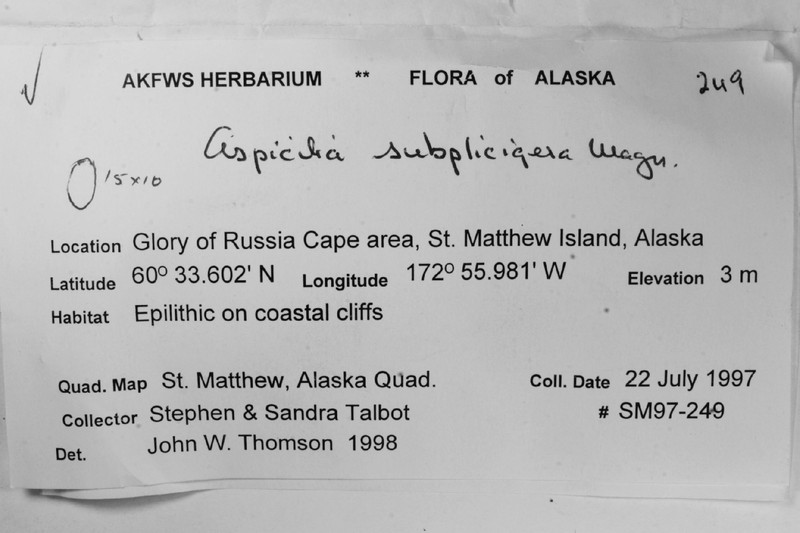 AKFWS HERBARIUM ** FLORA of ALASKA 249
Aspicilia subplicigera Magn.
15 x 10
Location Glory of Russia Cape area, St. Matthew Island, Alaska
Latitude 60º 33.602' N Longitude 172º 55.981' W Elevation 3 m
Habitat Epilithic on coastal cliffs
Quad. Map St. Matthew, Alaska Quad. Coll. Date 22 July 1997
Collector Stephen & Sandra Talbot # SM97-249
Det. John W. Thomson 1998